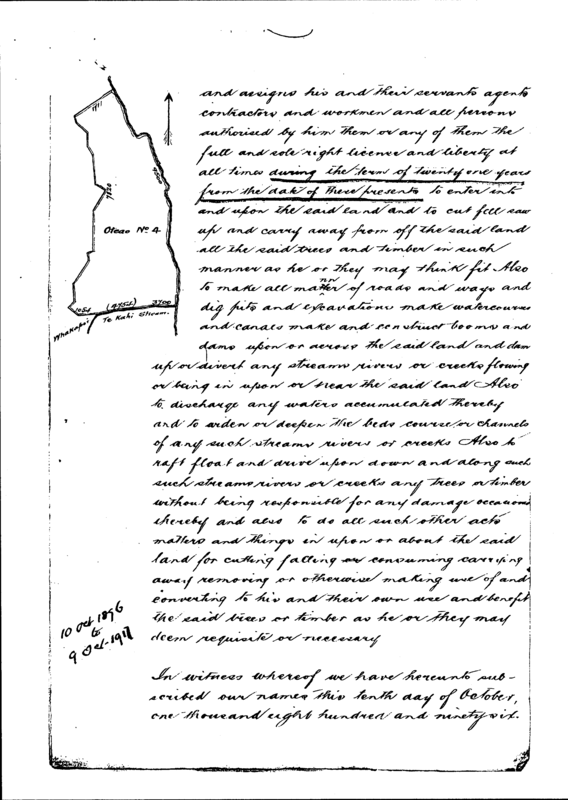 and assigns his and their servants agents
contractors and workmen and all persons
authorised by him them or any of them the
full and sole right licence and liberty at
all times during the term of twenty one years
from the date of these presents to enter into
and upon the said land and to cut fell saw
up and carry away from off the said land
all the said trees and timber in such
manner as he or they may think fit Also
to make all manner of roads and ways and
dig pits and excavations make watercourses
and canals make and construct booms and
dams upon or across the said land and dam
up or divert any streams rivers or creeks flowing
or being in upon or near the said land Also
to discharge any waters accumulated thereby
and to widen or deepen the beds course or channels
of any such streams rivers or creeks Also to
raft float and drive upon down and along such
such streams rivers or creeks any trees or timber
without being responsible for any damage occasioned
thereby and also to do all such other acts
matters and things in upon or about the said
land for cutting falling or consuming carrying
away removing or otherwise making use of and
converting to his and their own use and benefit
the said trees or timber as he or they may
deem requisite or necessary
In witness whereof we have hereunto sub-
scribed our names this tenth day of October,
one thousand eight hundred and ninety six.
1911
Oteao No 4
1054 (4754) 3700
Te Kahi Stream.
10 Oct 1896
to
9 Oct-1917